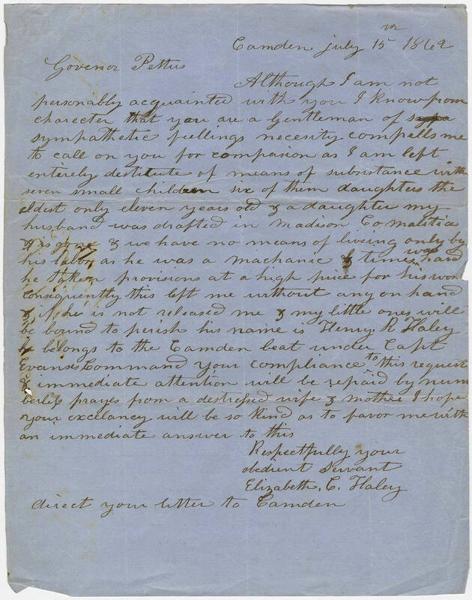 Camden july 15th 1862
Govenor Pettus
Although I am not
personably acquainted with you I know from
charecter that you are a Gentleman of
sympathetic feelings necesity compells me
to call on you for compasion as I am left
enterely destitute of means of subsistance with
seven small children six of them daughters the
eldest only eleven years old & a daughter my
husband was drafted in Madison Co malitia
& is gone & we have no means of liveing only by
his labor as he was a machanic & times was hard
he taken provisions at a high price for his work
consiquently this left me without any on hand
& if he is not released me & my little ones will
be bound to perish his name is Henry R Haley
& belongs to the Camden beat under Capt
Evans Command your compliance to this request
& immediate attention will be repaid by num
berless prayes from a destressed wife & mother I hope
your excelancy will be so kind as to favor me with
an immediate answer to this
Respectfully your
obedient Servant
Elizabeth. C. Haley
direct your letter to Camden